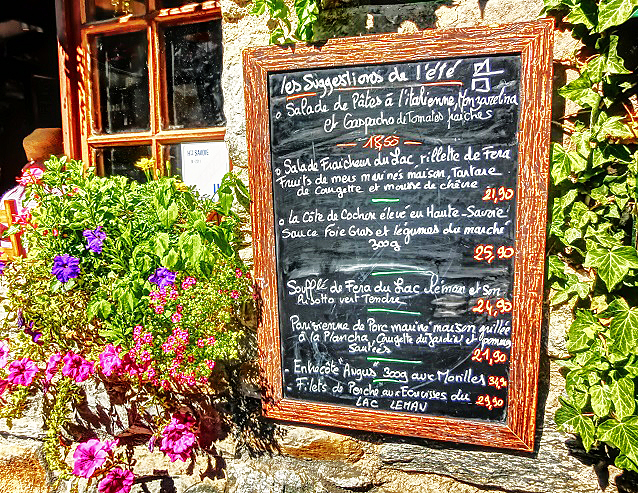 Les Suggestions de l'été
Salade de Pâtes à l'italienne, Monzaretina
et Gaspacho de Tomates fraiches
18,50
Salade Fraicheur du Lac, rillette de Fera
Fruits de mer marinés maison, Tartare
de Courgette et mousse de chèvre
21,90
La Côte de Cochon élevé en Haute-Savoie
Sauce Foie Gras et légumes du marché
300g
25,90
Soufflé de Fera du Lac Léman et son
Risotto vert Tendre
24,90
Parisienne de Porc mariné maison grillée
à la Plancha, Courgette du Jardin et pommes
sautées
21,90
Entrecôte "Angus" 300g aux Morilles
Filets de Perche aux Ecrevisses du
LAC LEMAN
29,90
SAVOIE